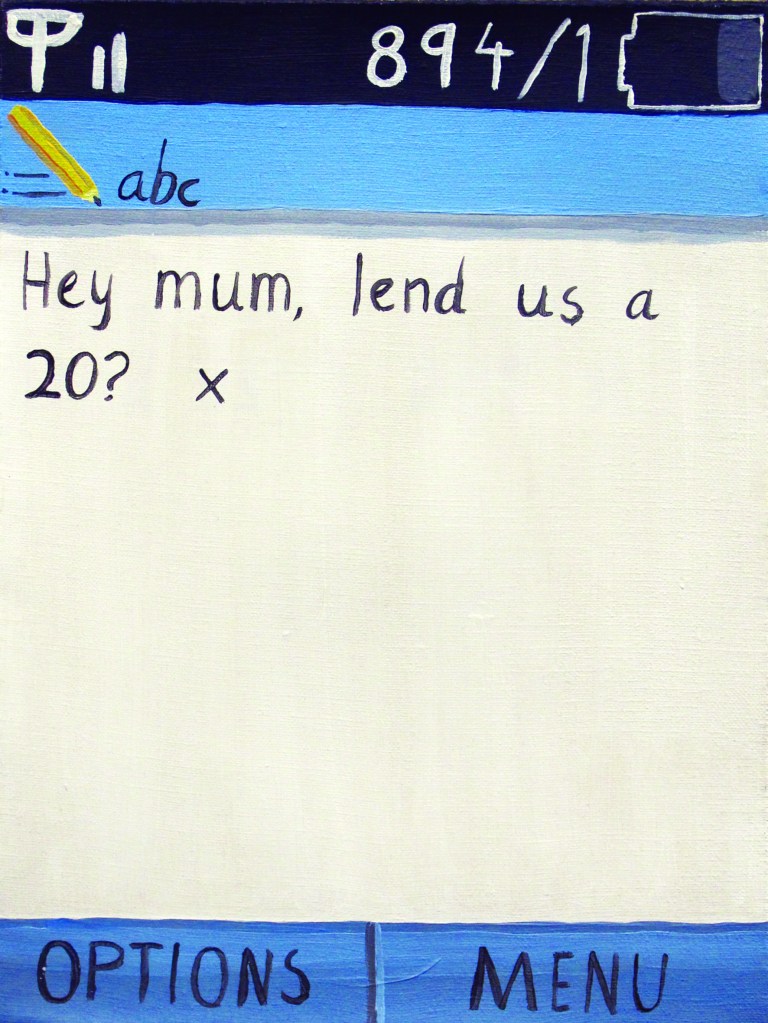 894/1
abc
Hey mum, lend us a
20? x
OPTIONS MENU